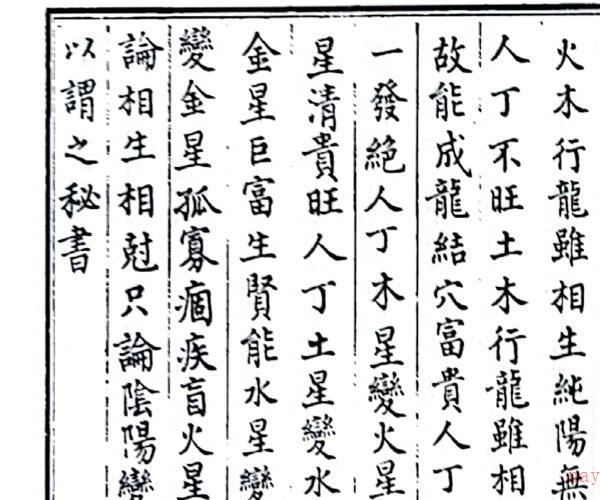 火木行龍雖相生純陽無
人丁不旺土木行龍雖相
故能成龍結穴富貴人丁
一發絕人丁木星變火星
星清貴旺人丁土星變水
金星巨富生賢能水星變
變金星孤寡痼疾盲火星
論相生相尅只論陰陽變
以謂之秘書